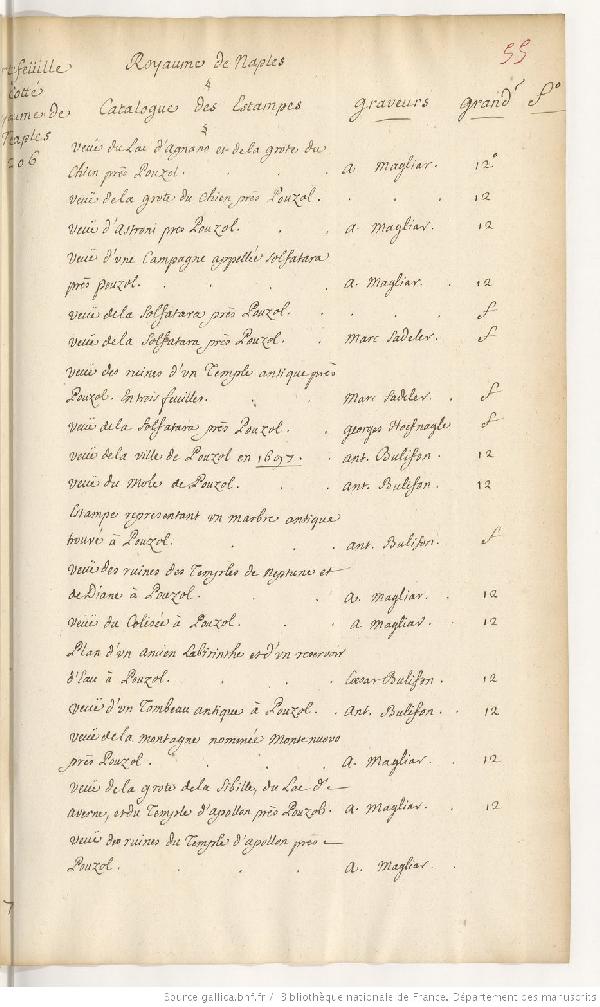 55
Royaume de Naples
rtefeüille
Cotté
yaume de
Naples
206
Catalogue des Estampes Graveurs Grandr. fo.
Veüe du Lac d'Agnano et de la grote du
Chien près Pouzol. A Magliar. 12o
veüe de la grote du Chien près Pouzol. 12
veüe d'Astroni près Pouzol. A. Magliar. 12
veüe d'vne Campagne appellée Solfatara
près Pouzol. A. Magliar. 12
veüe de la Solfatara près Pouzol. f
veüe de la Solfatara près Pouzol. Marc Sadeler. f
veüe des ruines d'vn Temple antique près
Pouzol. En trois feuilles. Marc Sadeler. f
veüe de la Solfatara près Pouzol. Georges Hoefnagle f
veüe de la ville de Pouzol en 1697. Ant. Bulifon. 12
veüe du Mole de Pouzol. Ant. Bulifon. 12
Estampe représentant vn marbre antique
trouvé à Pouzol. Ant. Bulifon. f
veüe des ruines des Temples de Neptune et
de Diane à Pouzol. A. Magliar. 12
veüe du Colisée à Pouzol. A Magliar. 12
Plan d'vn ancien Labirinthe et d'vn reservoir
d'Eau à Pouzol. Cæsar Bulifon. 12
veüe d'vn Tombeau antique à Pouzol. Ant. Bulifon. 12
veüe de la montagne nommée Montenuovo
près Pouzol. A. Magliar. 12
veüe de la grote de la Sibille, du Lac d'
averne, et du Temple d'apollon près Pouzol. A. Magliar. 12
veüe des ruines du Temple d'apollon près
Pouzol. A. Magliar
7
Source gallica.bnf.fr / Bibliothèque nationale de France. Département des manuscrits